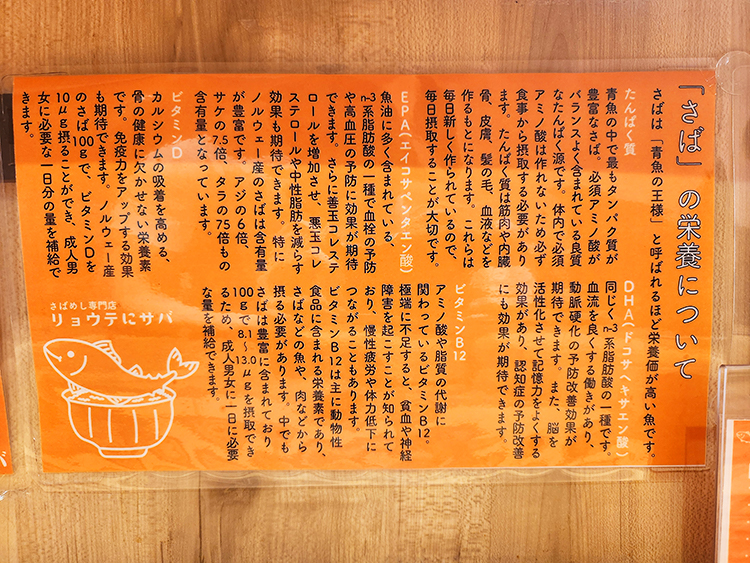 「さば」の栄養について
さばは「青魚の王様」と呼ばれるほど栄養価が高い魚です。
たんぱく質
青魚の中で最もタンパク質が
豊富なさば。必須アミノ酸が
バランスよく含まれている良質
なたんぱく源です。体内で必須
アミノ酸は作れないため必ず
食事から摂取する必要があり
ます。たんぱく質は筋肉や内臓
骨、皮膚、髪の毛、血液などを
作るもとになります。これらは
毎日新しく作られているので、
毎日摂取することが大切です。
EPA(エイコサペンタエン酸)
魚油に多く含まれている、
n-3系脂肪酸の一種で血栓の予防
や高血圧の予防に効果が期待
できます。さらに善玉コレステ
ロールを増加させ、悪玉コレ
ステロールや中性脂肪を減らす
効果も期待できます。特に
ノルウェー産のさばは含有量
が豊富です。アジの6倍、
サケの7.5倍、タラの75倍もの
含有量となっています。
ビタミンD
カルシウムの吸着を高める、
骨の健康に欠かせない栄養素
です。免疫力をアップする効果
も期待できます。ノルウェー産
のさば100gで、ビタミンDを
10μg摂ることができ、成人男
女に必要な一日分の量を補給で
きます。
DHA(ドコサヘキサエン酸)
同じくn-3系脂肪酸の一種です。
血流を良くする働きがあり、
動脈硬化の予防改善効果が
期待できます。また、脳を
活性化させて記憶力をよくする
効果があり、認知症の予防改善
にも効果が期待できます。
ビタミンB12
アミノ酸や脂質の代謝に
関わっているビタミンB12。
極端に不足すると、貧血や神経
障害を起こすことが知られて
おり、慢性疲労や体力低下に
つながることもあります。
ビタミンB12は主に動物性
食品に含まれる栄養素であり、
さばなどの魚や、肉などから
摂る必要があります。中でも
さばは豊富に含まれており
100gで8.1〜13.0μgを摂取でき
るため、成人男女に一日に必要
な量を補給できます。
さばめし専門店
リョウテにサバ